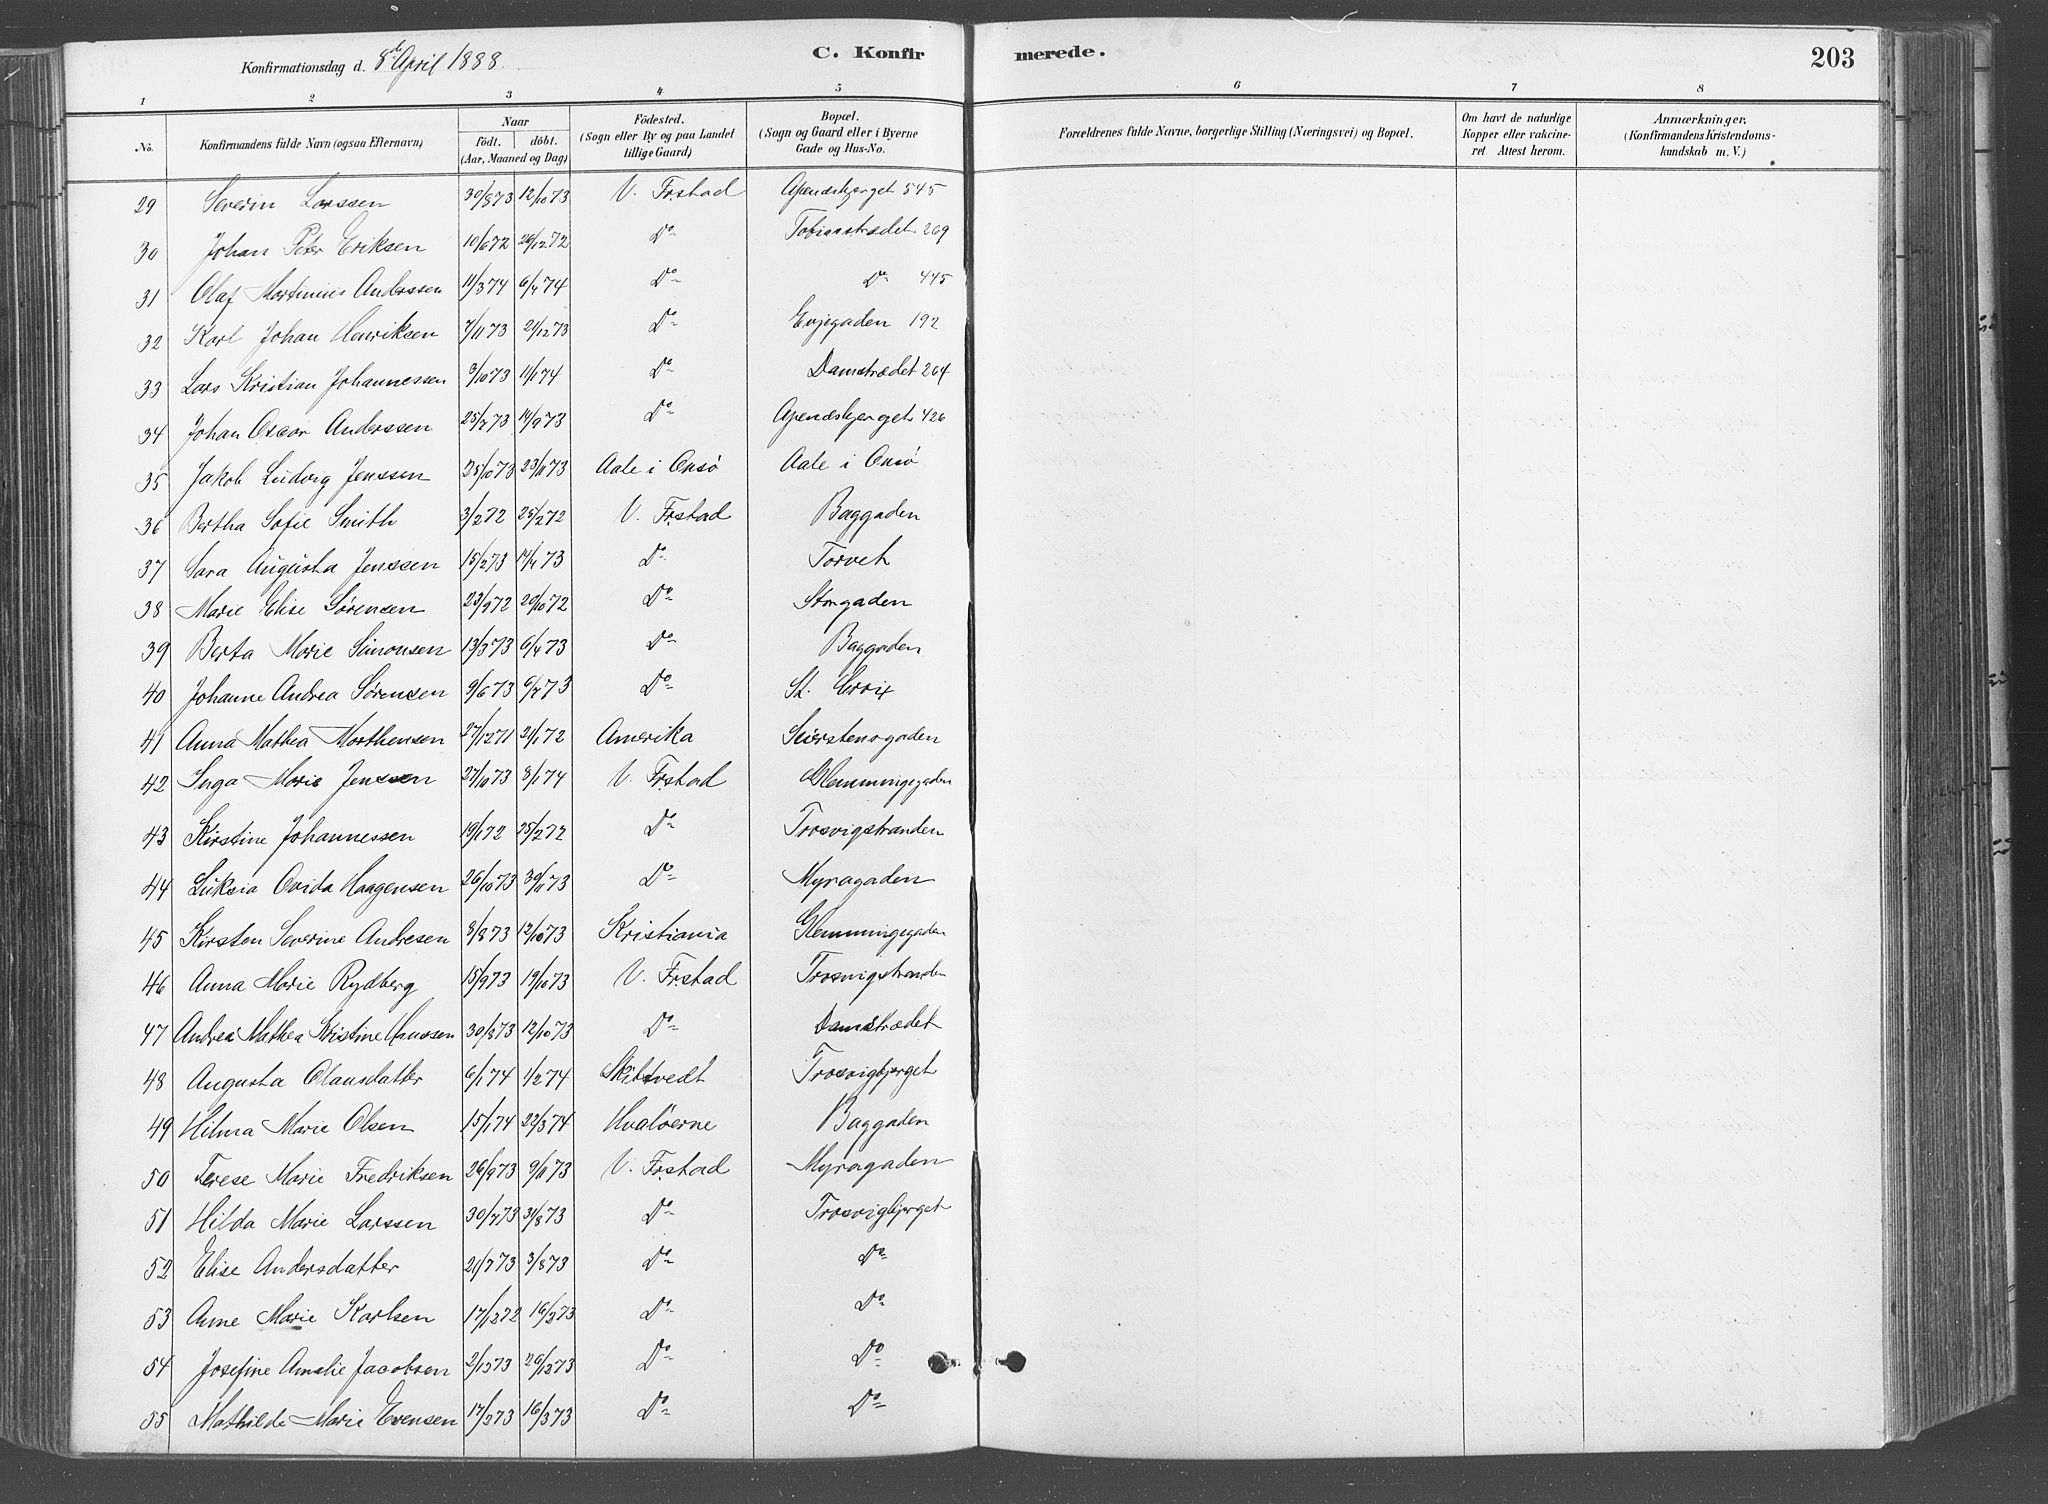 Konfirmationsdag d. 8de April 1888
C. Konfirmerede.
203
1 2 3 4 5 6 7 8
No.
Konfirmandens fulde Navn (ogsaa Efternavn)
Naar
födt. döbt.
(Aar, Maaned og Dag)
Födested.
(Sogn eller By og paa Landet
tillige Gaard)
Bopæl.
(Sogn og Gaard eller i Byerne
Gade og Hus-No.
Forældrenes fulde Navne, borgerlige Stilling (Næringsvei) og Bopæl.
Om havt de naturlige
Kopper eller vakcine-
ret. Attest herom.
Anmærkninger.
(Konfirmandens Kristendoms-
kundskab m. V.)
29 Severin Larssen 30/8 73 12/10 73 V. Frstad Apenæsbjerget 545
30 Johan Peter Eriksen 10/6 72 26/12 72 Do Tobiasstrædet 269
31 Olaf Martinius Anderssen 11/3 74 6/4 74 Do Do 445
32 Karl Johan Henriksen 7/11 73 21/12 73 Do Evjegaden 192
33 Lars Kristian Johannessen 3/10 73 11/1 74 Do Damstrædet 264
34 Johan Oscar Anderssen 25/7 73 14/9 73 Do Apenæsbjerget 426
35 Jakob Ludvig Jenssen 25/10 73 23/11 73 Aale i Onsö Aale i Onsö
36 Bertha Sofie Smith 3/2 72 25/2 72 V. Frstad Baggaden
37 Sara Augusta Jenssen 15/2 73 14/4 73 Do Torvet
38 Marie Elise Sørensen 23/9 72 20/10 72 Do Storgaden
39 Berta Marie Simonsen 13/3 73 6/4 73 Do Baggaden
40 Johanne Andrea Sørensen 9/6 73 6/7 73 Do St. Croix
41 Anna Mathea Morthensen 27/12 71 21/1 72 Amerika Seierstensgaden
42 Inga Marie Jenssen 27/10 73 8/1 74 V. Frstad Glemmingegaden
43 Kirstine Johannessen 19/1 72 25/2 72 Do Trosvigstranden
44 Luksia Ovida Haagensen 26/10 73 30/11 73 Do Myragaden
45 Kirsten Severine Andresen 8/8 73 12/10 73 Kristiania Glemmingegaden
46 Anna Marie Rydberg 15/9 73 19/10 73 V. Frstad Trosvigstranden
47 Andrea Mathea Kristine Hanssen 30/8 73 12/10 73 Do Damstrædet
48 Augusta Olausdatter 6/1 74 1/2 74 Skibtvedt Trosvigbjerget
49 Hilma Marie Olsen 15/1 74 22/3 74 Hvalöerne Baggaden
50 Terese Marie Fredriksen 26/9 73 9/11 73 V. Frstad Myragaden
51 Hilda Marie Larssen 30/7 73 31/8 73 Do Trosvigbjerget
52 Elise Andersdatter 21/7 73 3/8 73 Do Do
53 Anne Marie Karlsen 17/12 72 16/3 73 Do Do
54 Josefine Amalie Jacobsen 2/12 73 26/12 73 Do Do
55 Mathilde Marie Evensen 17/2 73 16/3 73 Do Do